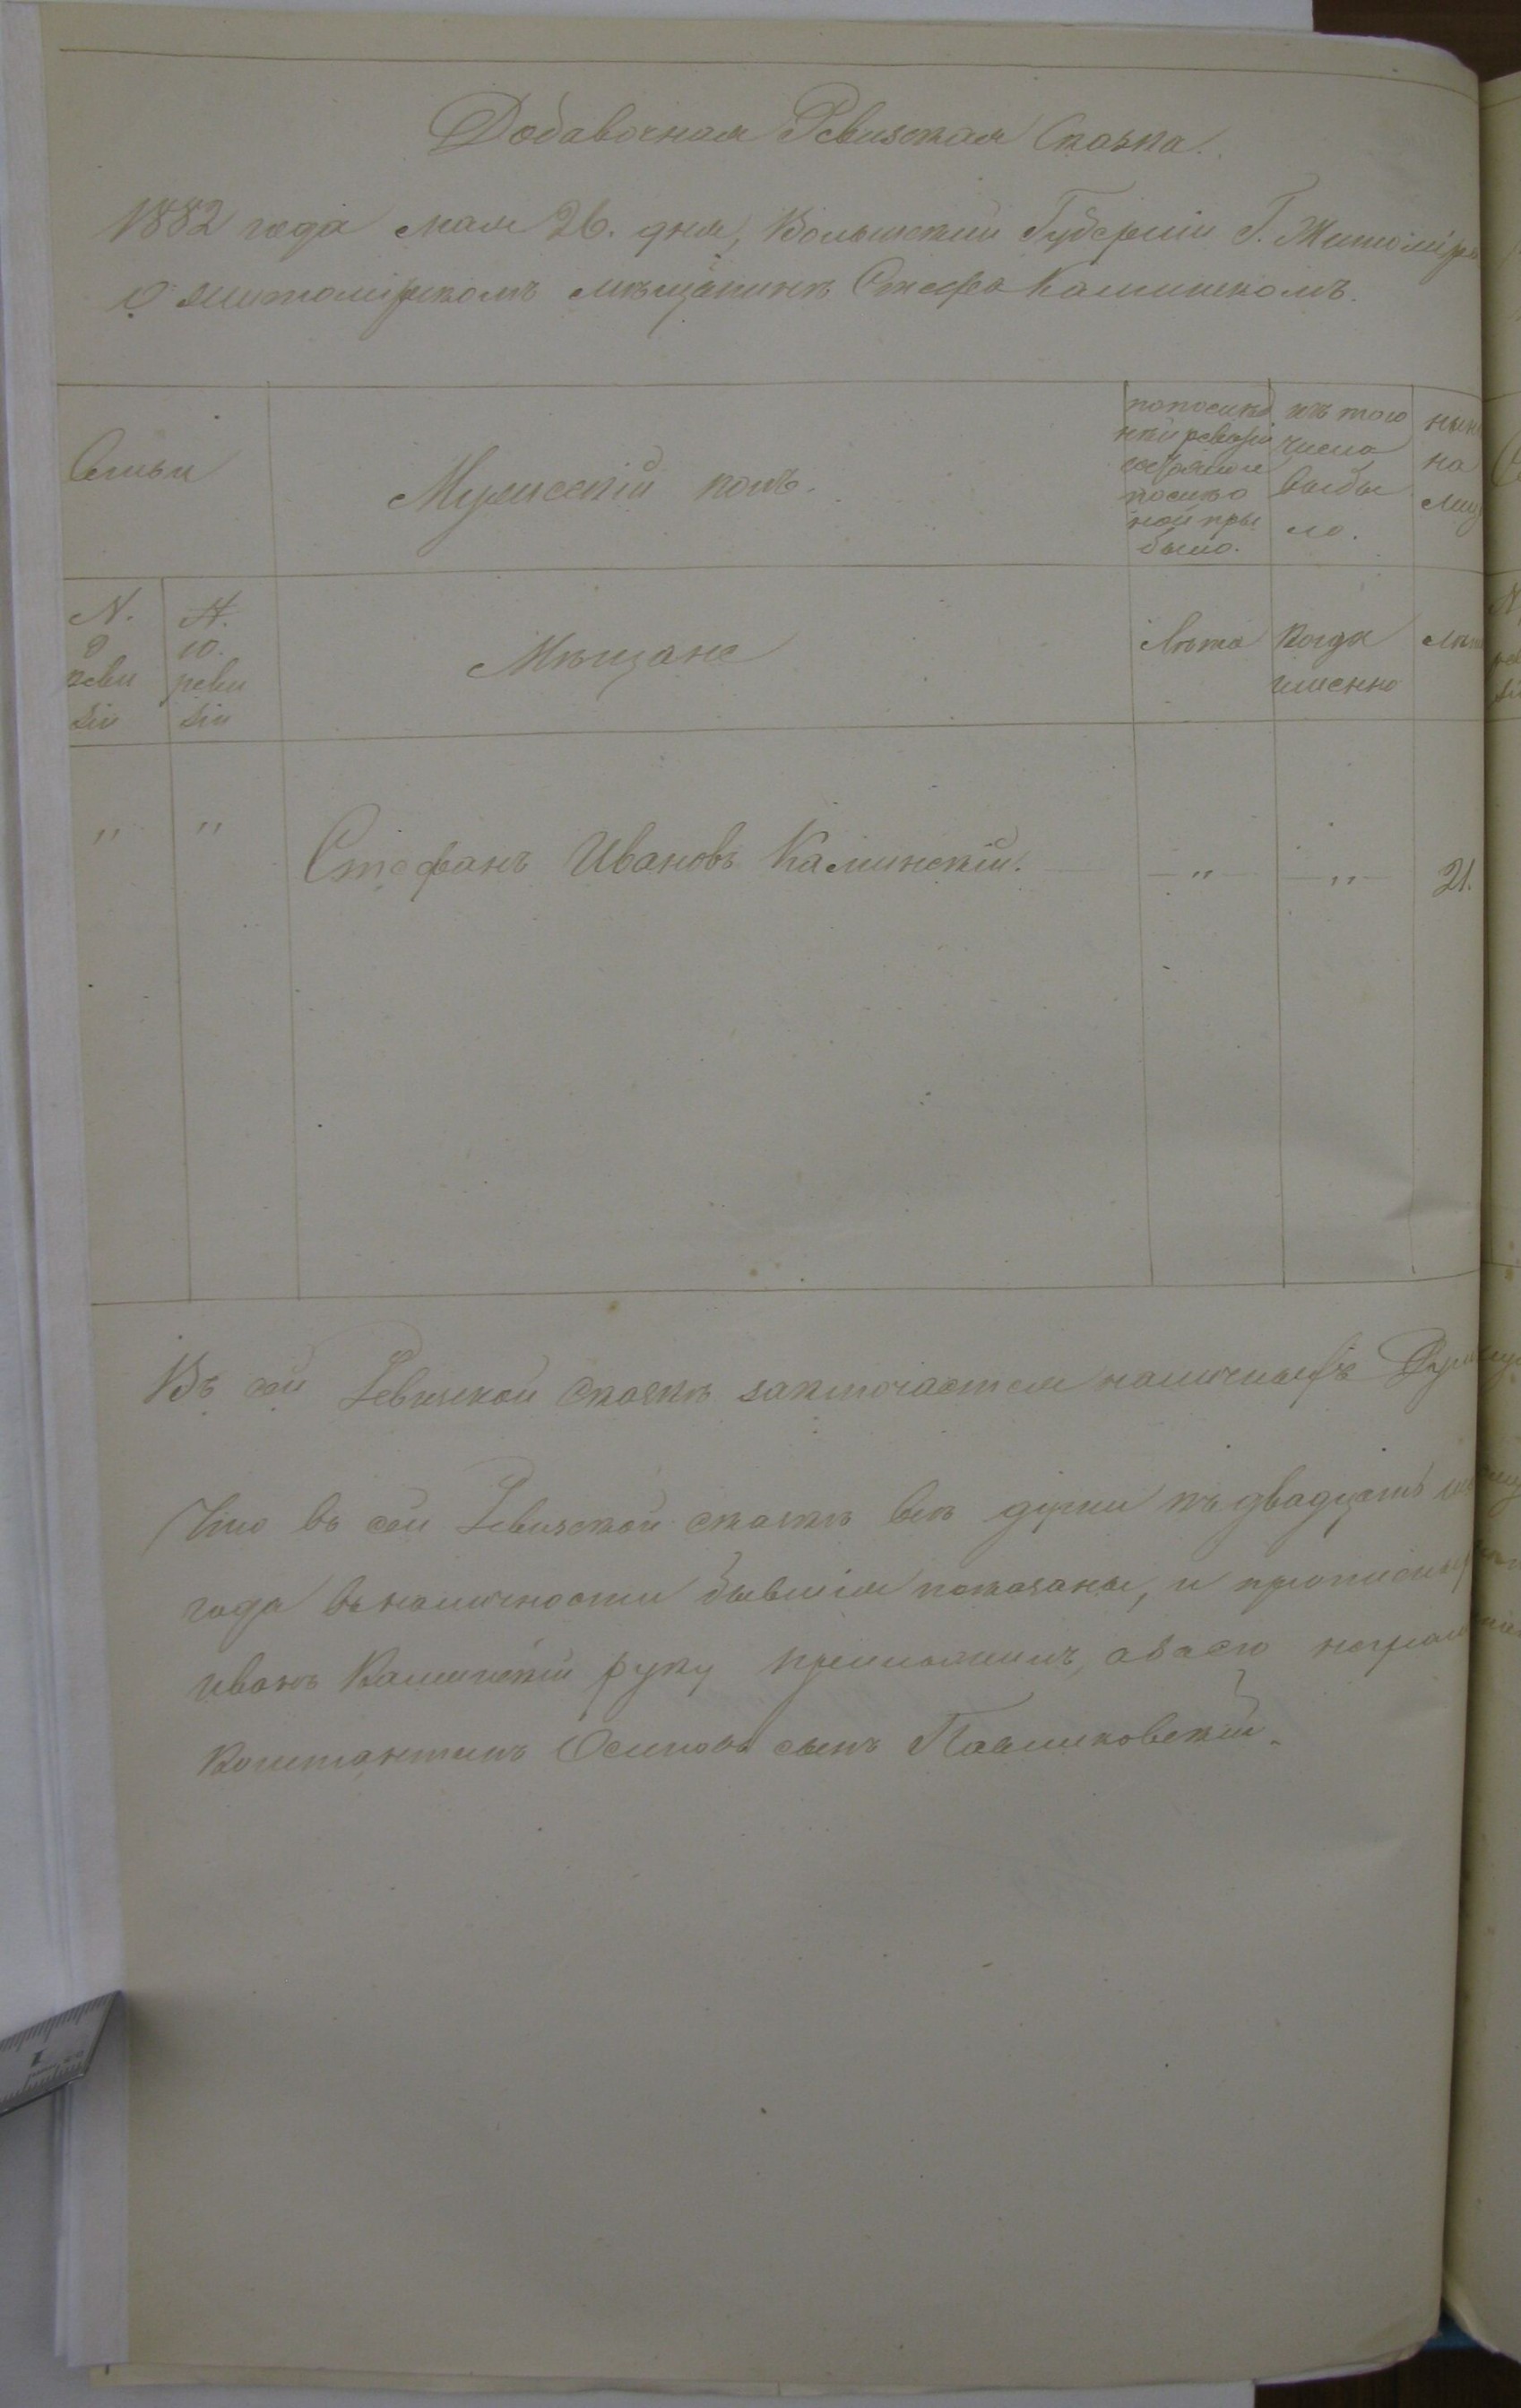 Добавочная Ревизская Сказка.
1882 года мая 26. дня, Волынской Губерніи Г. Житоміра
О житомірскомъ мѣщанинѣ Стефа Калинскомъ.
Семьи
Мужескій полъ.
по послѣд
ней ревизіи
состояло и
послѣ о
ной при
было.
изъ того
числа
выбы
ло.
нын
на
лиц
N.
9
реви
зіи
N.
10.
реви
зіи
Мѣщане
Лѣта
Когда
именно
лѣт
" " Стефанъ Ивановъ Калинскій. — " — — " — 21.
Въ сей Ревизской Сказкѣ заключается наличныхъ
Что въ сей Ревизской сказкѣ всѣ души къ двадцать
года въ наличности бывшія показаны, и
Иванъ Калинскій руку приложилъ, а за его неграм
Константинъ Осиповъ сынъ Павликовскій.